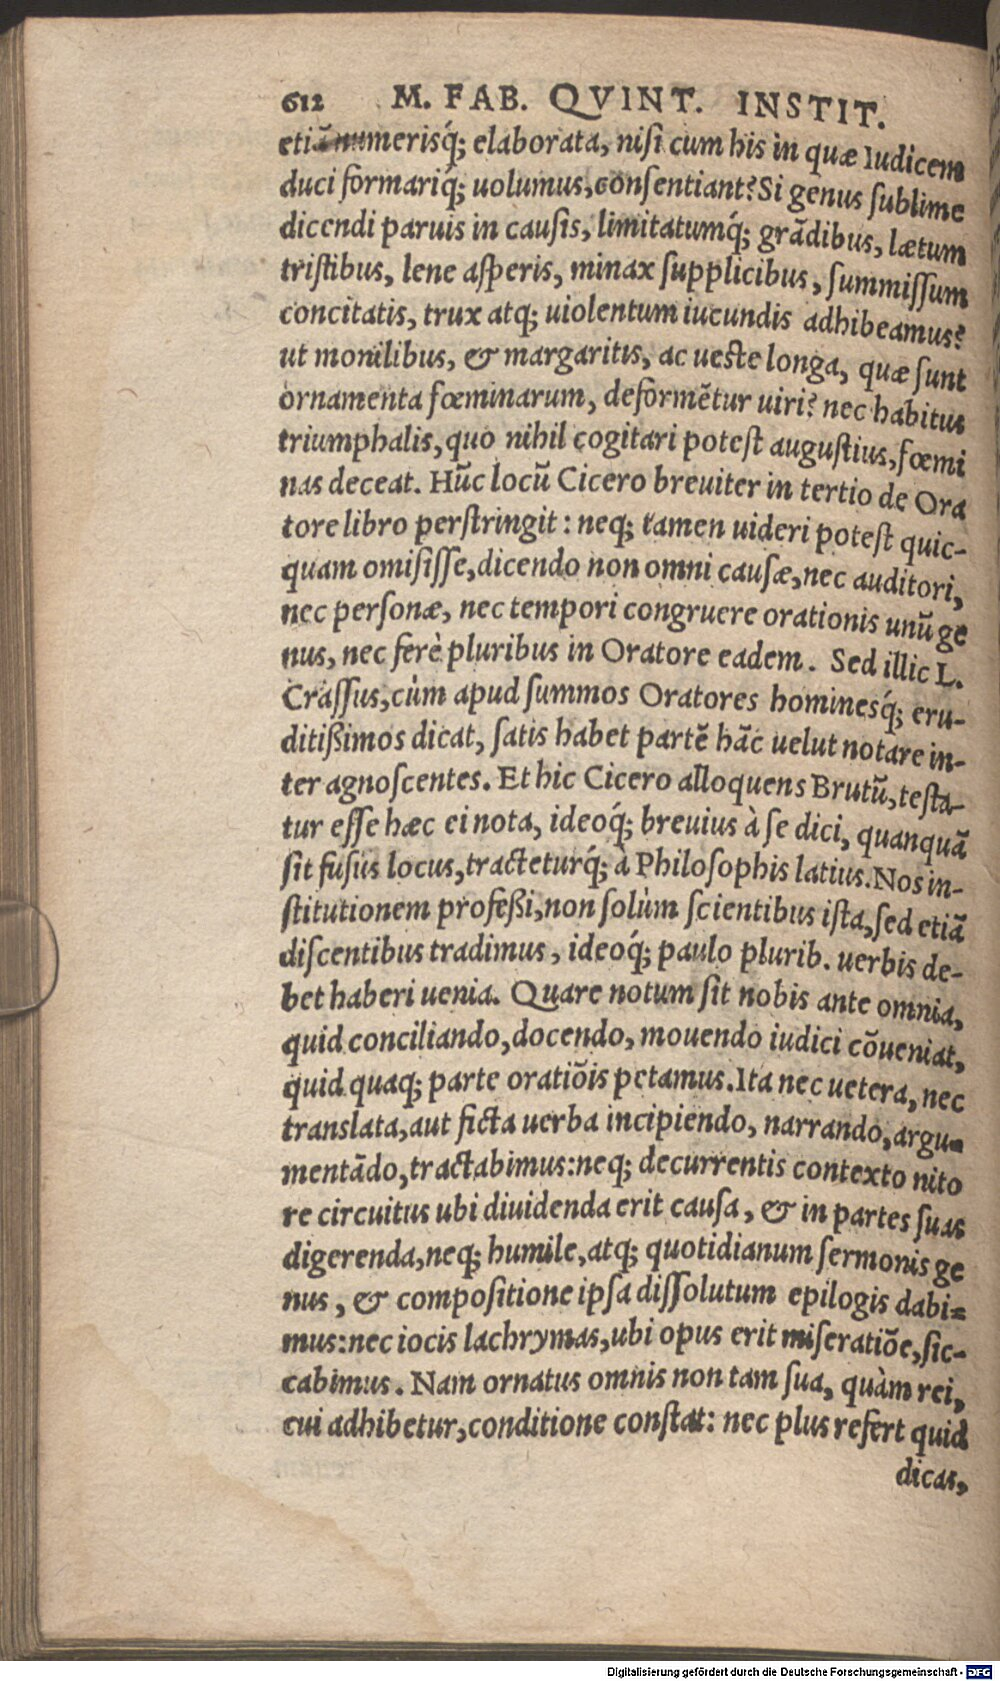 612 M. FAB. QVINT. INSTIT.
etiā numerisq́; elaborata, nisi cum his in quæ Iudicem
duci formariq́; uolumus, consentiant? Si genus sublime
dicendi paruis in causis, limitatumq́; grādibus, lætum
tristibus, lene asperis, minax supplicibus, summissum
concitatis, trux atq; uiolentum iucundis adhibeamus?
ut monilibus, & margaritis, ac ueste longa, quæ sunt
ornamenta fœminarum, deformētur uiri? nec habitus
triumphalis, quo nihil cogitari potest augustius, fœmi
nas deceat. Hūc locū Cicero breuiter in tertio de Ora
tore libro perstringit: neq; tamen uideri potest quic-
quam omisisse, dicendo non omni causæ, nec auditori,
nec personæ, nec tempori congruere orationis unū ge
nus, nec ferè pluribus in Oratore eadem. Sed illic L.
Crassus, cùm apud summos Oratores hominesq́; eru-
ditißimos dicat, satis habet partē hāc uelut notare in-
ter agnoscentes. Et hic Cicero alloquens Brutū, testa-
tur esse hæc ei nota, ideoq́; breuius à se dici, quanquā
sit fusus locus, tracteturq́; à Philosophis latius. Nos in-
stitutionem profeßi, non solùm scientibus ista, sed etiā
discentibus tradimus, ideoq́; paulo plurib. uerbis de-
bet haberi uenia. Quare notum sit nobis ante omnia,
quid conciliando, docendo, mouendo iudici cōueniat,
quid quaq; parte oratiōis petamus. Ita nec uetera, nec
translata, aut ficta uerba incipiendo, narrando, argu-
mentādo, tractabimus: neq; decurrentis contexto nito
re circuitus ubi diuidenda erit causa, & in partes suas
digerenda, neq; humile, atq; quotidianum sermonis ge
nus, & compositione ipsa dissolutum epilogis dabi=
mus: nec iocis lachrymas, ubi opus erit miseratiōe, sic-
cabimus. Nam ornatus omnis non tam sua, quàm rei,
cui adhibetur, conditione constat: nec plus refert quid
dicas,
Digitalisierung gefördert durch die Deutsche Forschungsgemeinschaft - DFG